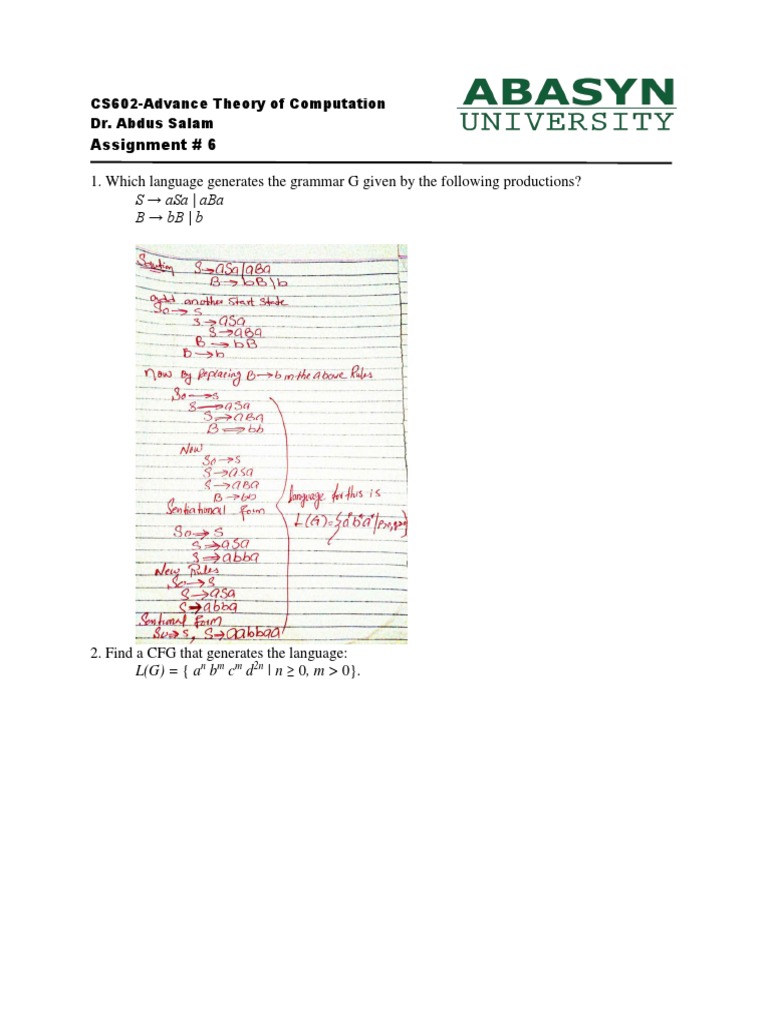 ABASYN
UNIVERSITY
CS602-Advance Theory of Computation
Dr. Abdus Salam
Assignment # 6
1. Which language generates the grammar G given by the following productions?
S → aSa | aBa
B → bB | b
Solution S→aSa|aBa
B→bB|b
add another start state
So→s
S→aSa
S→aBa
B→bB
B→b
Now By Replacing B→b in the above Rules
So→s
S→aSa
S→aBa
B→bb
Now
So→s
S→asa
S→aBa
B→bb
Sentiational form
So→S
S→aSa
S→abba
New Rules
So→s
S→aSa
S→abba
Sentional form
So→s, S→aabbaa
language for this is
L(G)=
2. Find a CFG that generates the language:
L(G) = { aⁿ bᵐ cᵐ d²ⁿ | n ≥ 0, m > 0}.